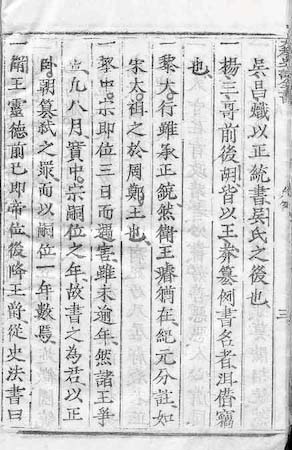 吳昌熾以正統書吳氏之後也
一楊三哥前後胡皆以王莽篡例書名者沮僭竊
也
一黎大行雖承正統然衛王璿猶在紀元分註如
宋太祖之於周鄭王也
一黎中宗即位三日而遇害雖未逾年然諸王爭
立凡八月實中宗嗣位之年故書之為君以正
卧朝篡弒之罪而以嗣位一年數焉
一王靈德前已即帝位後降王爵從史法書曰
三